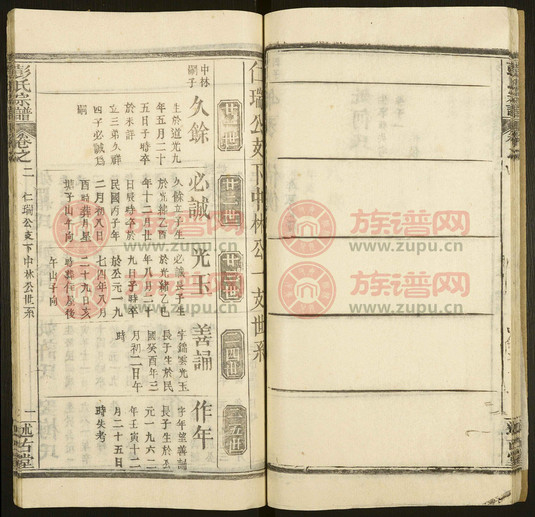 仁瑞公支下中林公一支世系
廿一世
中林嗣子
久餘
生於道光九
年五月二十
五日子時卒
於未詳
立三弟久
四子必誠爲
嗣
廿二世
必誠
久餘立子生
於光緒乙酉
年十二月廿
日辰時卒於
民國丙子年
二月初八日
酉時葬月星
塘子山午向
廿三世
光玉
必誠長子生
於光緒乙巳
年八月二十
九日子時卒
於公元一九
七四年八月
二十九日亥
時葬
午山子向
二四世
善誦
字
光玉
長子生於民
國癸酉年三
月初二日午
時
二五世
作年
字年
善誦
長子生於公
元一九六二
年壬寅十二
月二十五日
時失考
彭氏宗譜
卷之二
仁瑞公支下中林公世系
一
述古堂
族谱网
www.zupu.cn
族谱网
www.zupu.cn
族谱网
www.zupu.cn
族谱网
www.zupu.cn